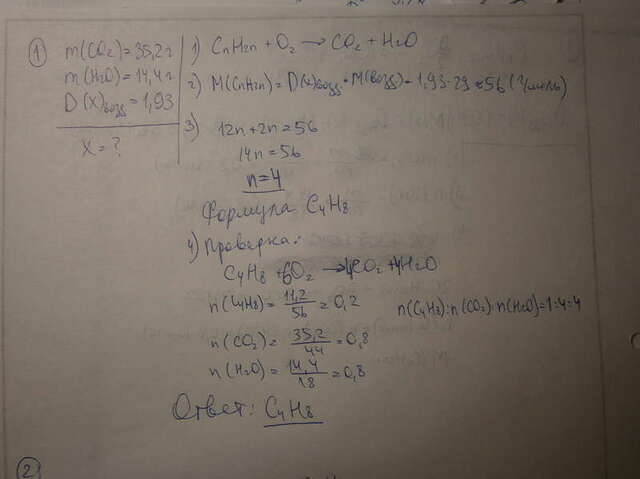 1
m(CO2)=35,2 г
m(H2O)=14,4 г
D(X)возд=1,93
X=?
1) CnH2n + O2 → CO2 + H2O
2) M(CnH2n)=D(x)возд•M(возд)=1,93•29≈56(г/моль)
3) 12n+2n=56
14n=56
n=4
Формула C4H8
4) Проверка:
C4H8 + 6O2 → 4CO2 + 4H2O
n(C4H8)=11,2/56=0,2
n(C4H8):n(CO2):n(H2O)=1:4=4
n(CO2)=35,2/44=0,8
n(H2O)=14,4/18=0,8
Ответ: C4H8
2